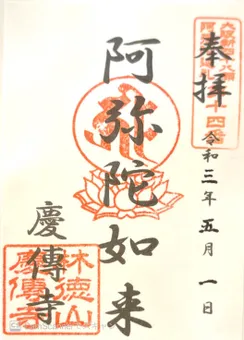 奉拝
令和三年五月一日
阿弥陀如来
慶傳寺
林徳山
慶傳寺